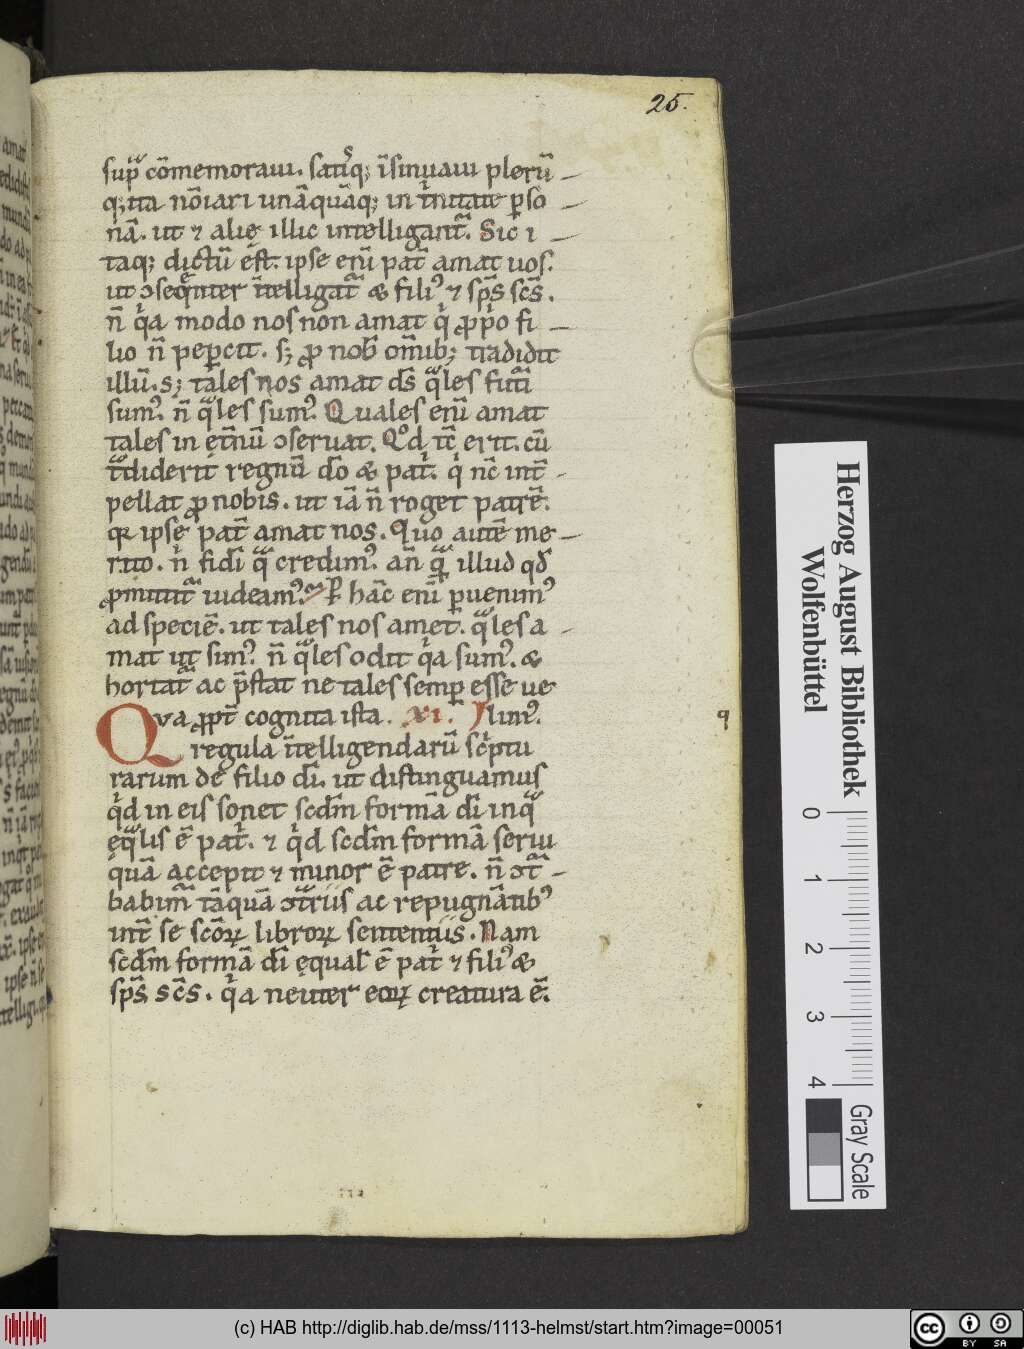 25.
sup̄ cōmemoraui. satisq; īsinuaui plerū
q; ita nōiari unāquāq; in trinitate ꝑso
nā. ut ⁊ alię illic intelligant̄. Sic i
taq; dictū ēst. ipse enī pat̄ amat uos.
ut ↄseq̄nter ītelligat̄ & filiꝰ ⁊ sp̄s sc̄s.
n̄ qⁱa modo nos non amat qⁱ ꝓpⁱo fi
lio n̄ peꝑcit. s; ꝓ nob̄ om̄ib; tradidit
illū. s; tales nos amat d̄s qᵃles futⁱ
sumꝰ. n̄ qᵃles sumꝰ. Quales enī amat
tales in et̄nū ↄseruat. Qᵒd tc̄ erit. cū
tᵃdiderit regnū dō & pat̄. qⁱ nc̄ int̄
pellat ꝓ nobis. ut iā n̄ roget patrē.
qꝛ ipse pat̄ amat nos. Quo autē me
rito. nⁱ fidī qᵃ credimꝰ. an̄ qᵃꝫ illud qđ
ꝓmittit̄ uideamꝰ. P̄ hāc enī ꝑuenimꝰ
ad speciē. ut tales nos amet. qᵃles a
mat ut simꝰ. n̄ qᵃles odit qⁱa sumꝰ. &
hortat̄ ac p̄stat ne tales semꝑ esse ue
Qva ꝓpt̄ cognita ista. xi. limꝰ.
regula ītelligendarū scⁱptu
rarum de filio dī. ut distinguamus
qⁱd in eis sonet scđm formā dī in qᵃ
ęqᵃlis ē pat̄. ⁊ qⁱd scđm formā serui
quā accepit ⁊ minor ē patre. n̄ ↄt̄
babim̄ tāquā ↄtᵃriis ac repugnātibꝰ
int̄ se scōꝝ libroꝝ sententiis. Nam
scđm formā dī ęqual̄ ē pat̄ ⁊ filiꝰ &
sp̄s sc̄s. qⁱa neuter eoꝝ creatura ē.
q
Herzog August Bibliothek
Wolfenbüttel
0 1 2 3 4
Gray Scale
(c) HAB http://diglib.hab.de/mss/1113-helmst/start.htm?image=00051
cc BY SA